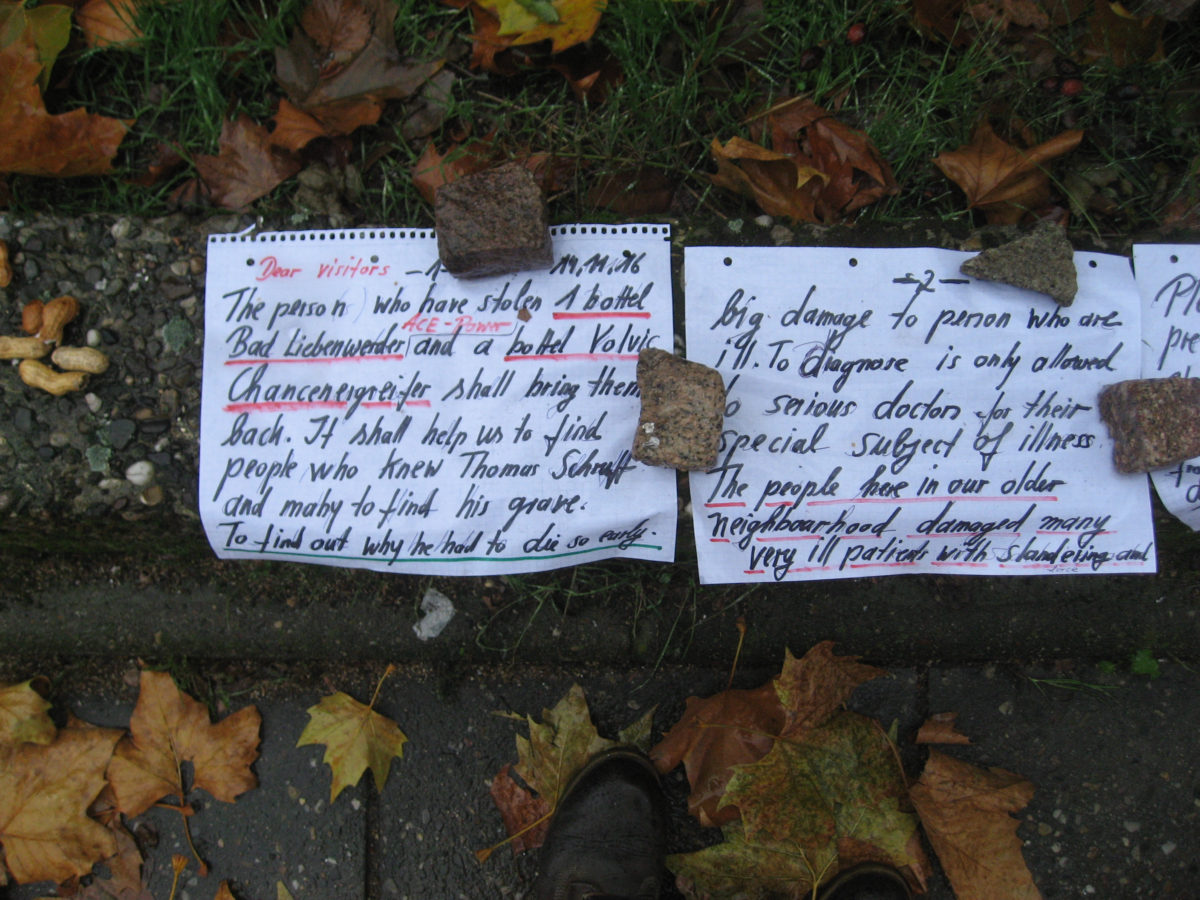 Dear visitors -1 14.11.16
The person who have stolen 1 bottel
ACE-Power
Bad Liebenwerder and a bottel Volvic
Chancenergreifer shall bring them
back. It shall help us to find
people who knew Thomas
and maby to find his grave.
To find out why he had to die so early.
-2-
big damage to person who are
ill. To diagnose is only allowed
serious doctors for their
special subject of illness.
The people here in our older
neighbourhood damaged many
very ill patients with slandering and